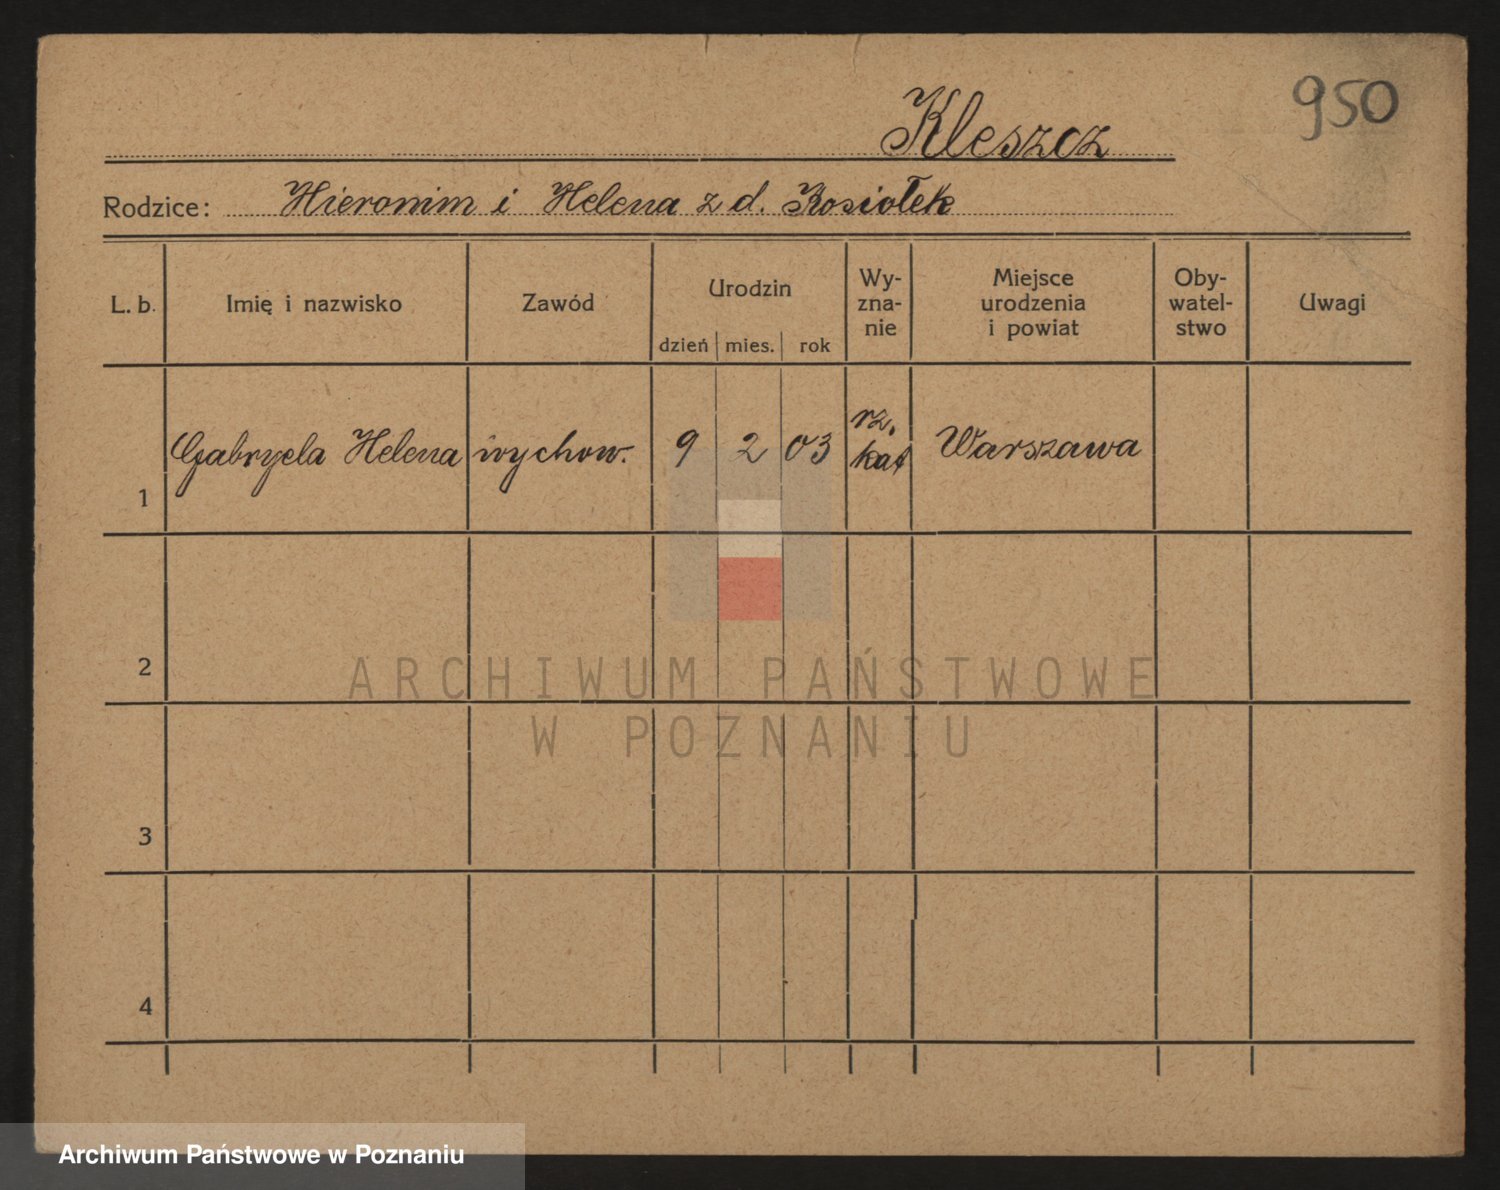 950
Kleszcz
Rodzice: Hieronim i Helena z d. Kosiołek
L. b. Imię i nazwisko Zawód Urodzin dzień mies. rok Wy-zna-nie Miejsce urodzenia i powiat Oby-watel-stwo Uwagi
1 Gabryela Helena wychow. 9 2 03 rz. kat Warszawa
2
ARCHIWUM PAŃSTWOWE
W POZNANIU
3
4
Archiwum Państwowe w Poznaniu